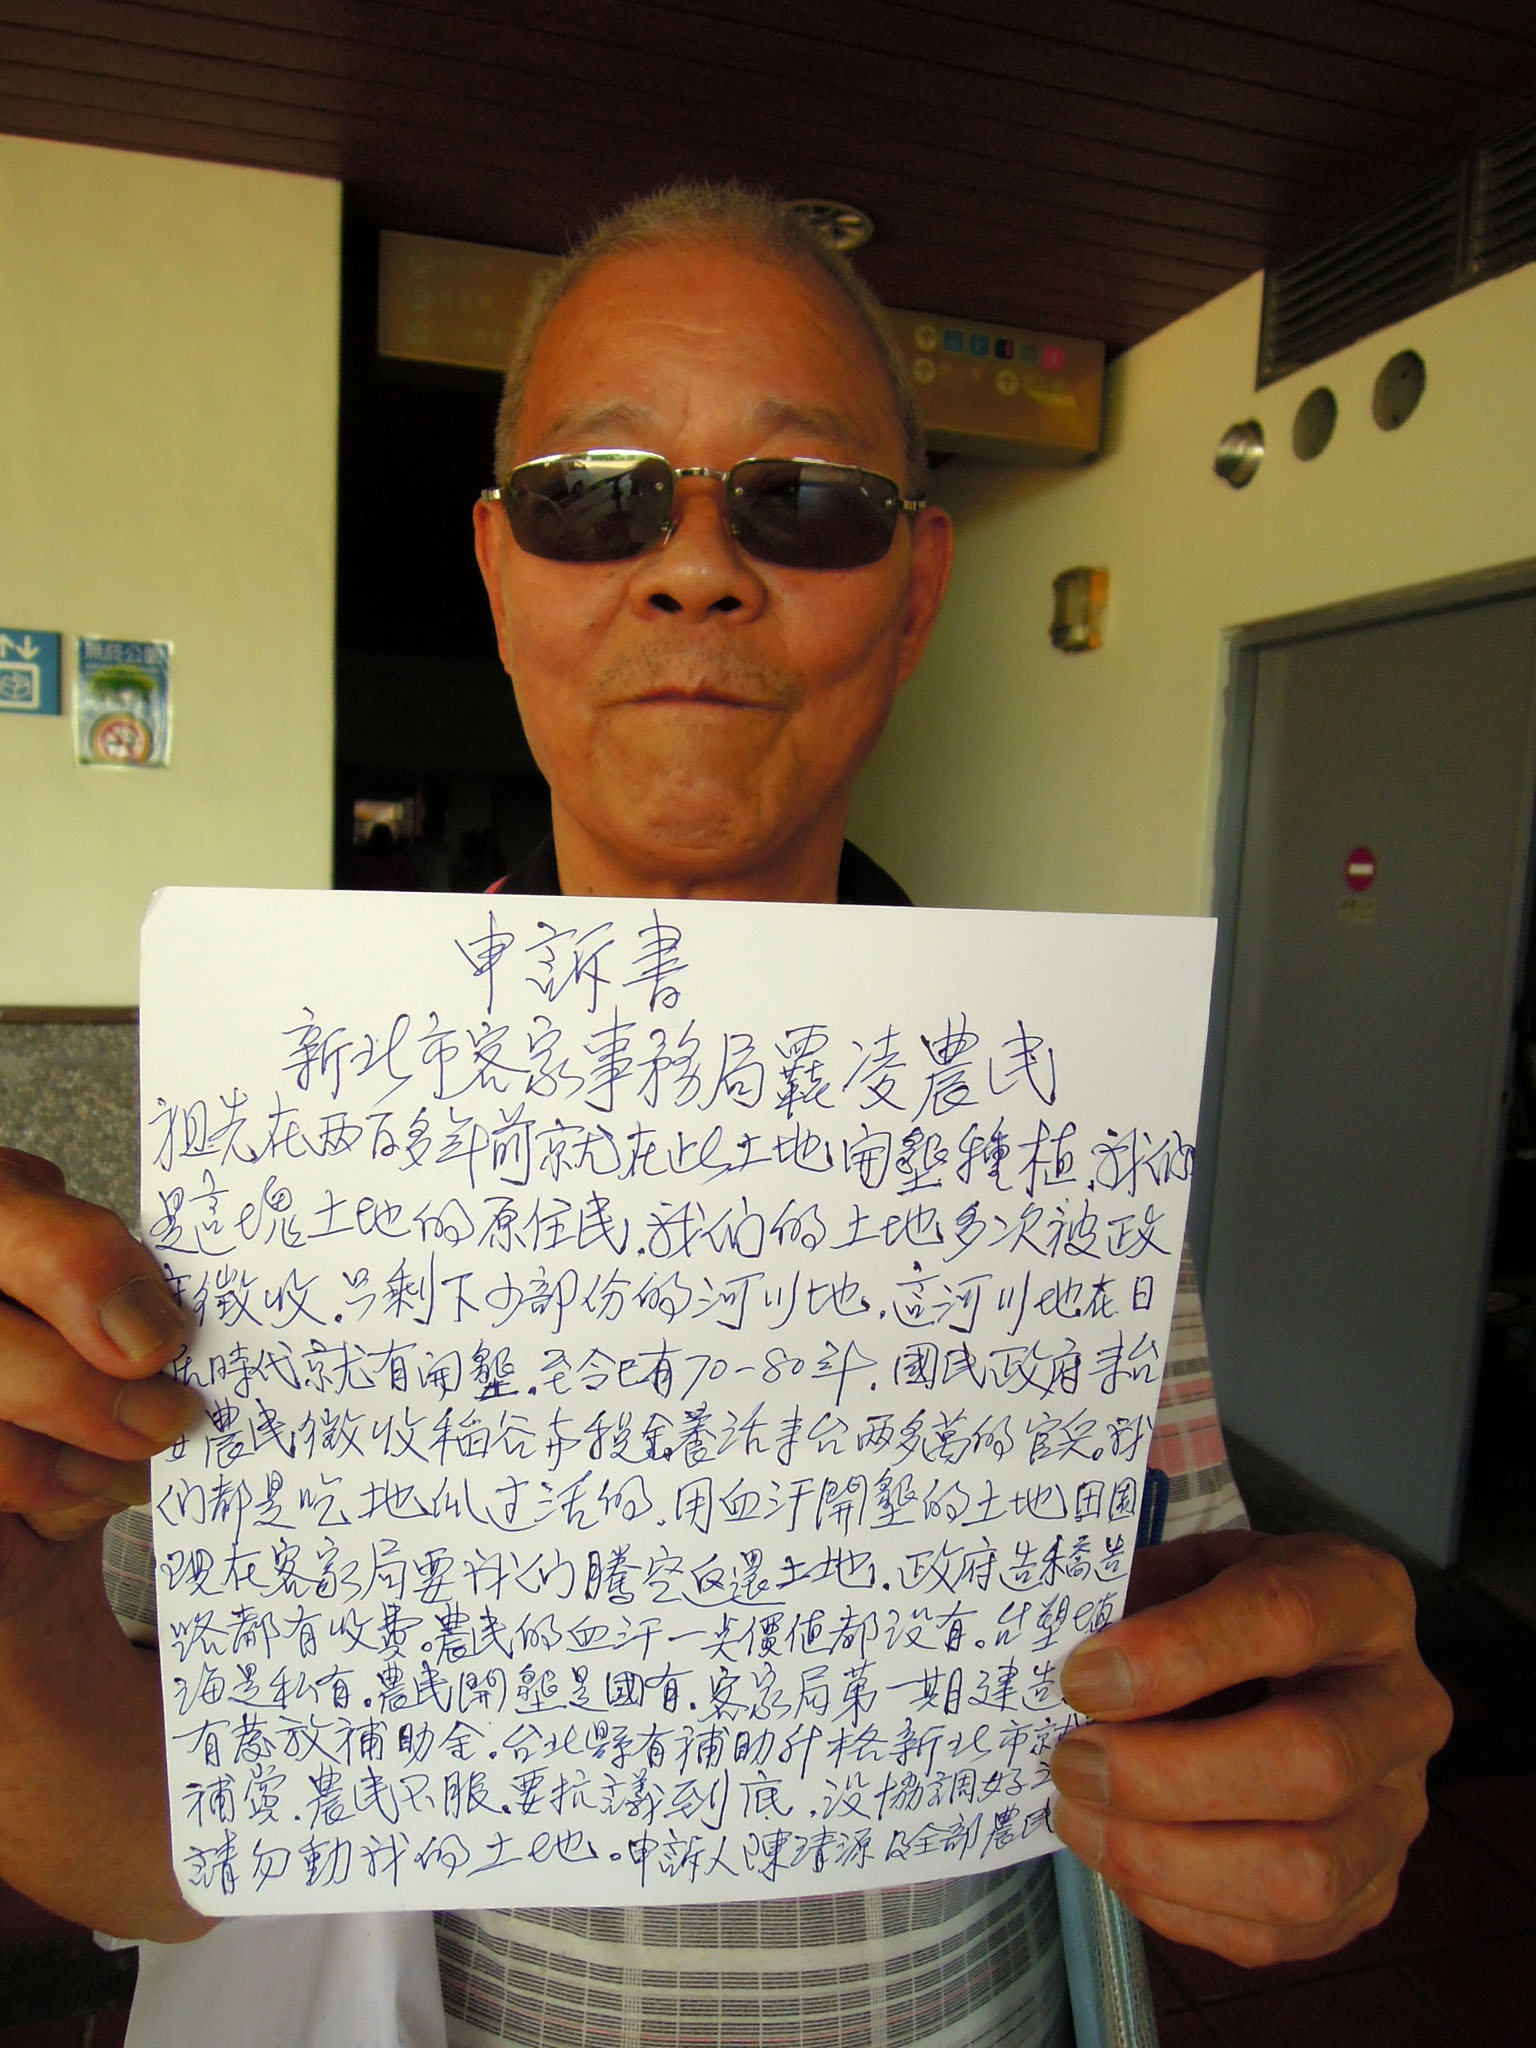 無菸公園
申訴書
新北市客家事務局霸凌農民
祖先在兩百多年前就在此土地開墾種植.我们
是這塊土地的原住民.我们的土地多次被政
徵收.只剩下少部份的河川地.這河川地在日
時代就有開墾.至今已有70-80年.國民政府来台
農民徵收稻谷亦税金養活来台兩多萬的官兵。我
们都是吃地瓜过活的.用血汗開墾的土地田園
現在客家局要我们騰空返還土地.政府造橋造
路都有收費。農民的血汗一点價值都没有。台塑填
海是私有。農民開墾是國有.客家局第一期建造
有發放補助金.台北縣有補助升格新北市就
補償.農民不服.要抗議到底.没協調好之
請勿動我的土地。申訴人陳清源及全部農民